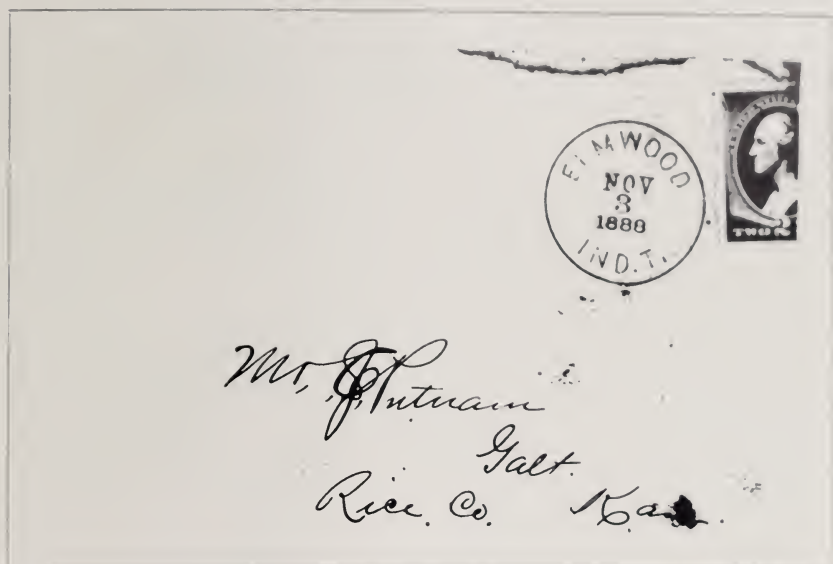 ELMWOOD
NOV
3
1888
IND. T.
TWO
Mr, J. Putnam
Galt.
Rice. Co. Kan.